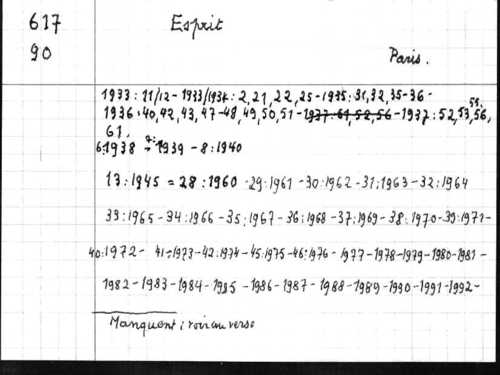 617
Esprit
90
Paris.
1933 : 11/12 - 1933/1934 : 2, 21, 22, 25 - 1935 : 31, 32, 35-36 -
1936 : 40, 42, 43, 47-48, 49, 50, 51 - 1937 : 61, 52, 56 - 1937 : 52, 53, 56,
61.
6:1938 - 1939 - 8:1940
13:1945 = 28:1960 - 29:1961 - 30:1962 - 31:1963 - 32:1964
33:1965 - 34:1966 - 35:1967 - 36:1968 - 37:1969 - 38:1970 - 39:1971 -
40:1972 - 41:1973 - 42:1974 - 45:1975 - 46:1976 - 1977 - 1978 - 1979 - 1980 - 1981 -
1982 - 1983 - 1984 - 1985 - 1986 - 1987 - 1988 - 1989 - 1990 - 1991 - 1992 -
Manquent : voir au verso